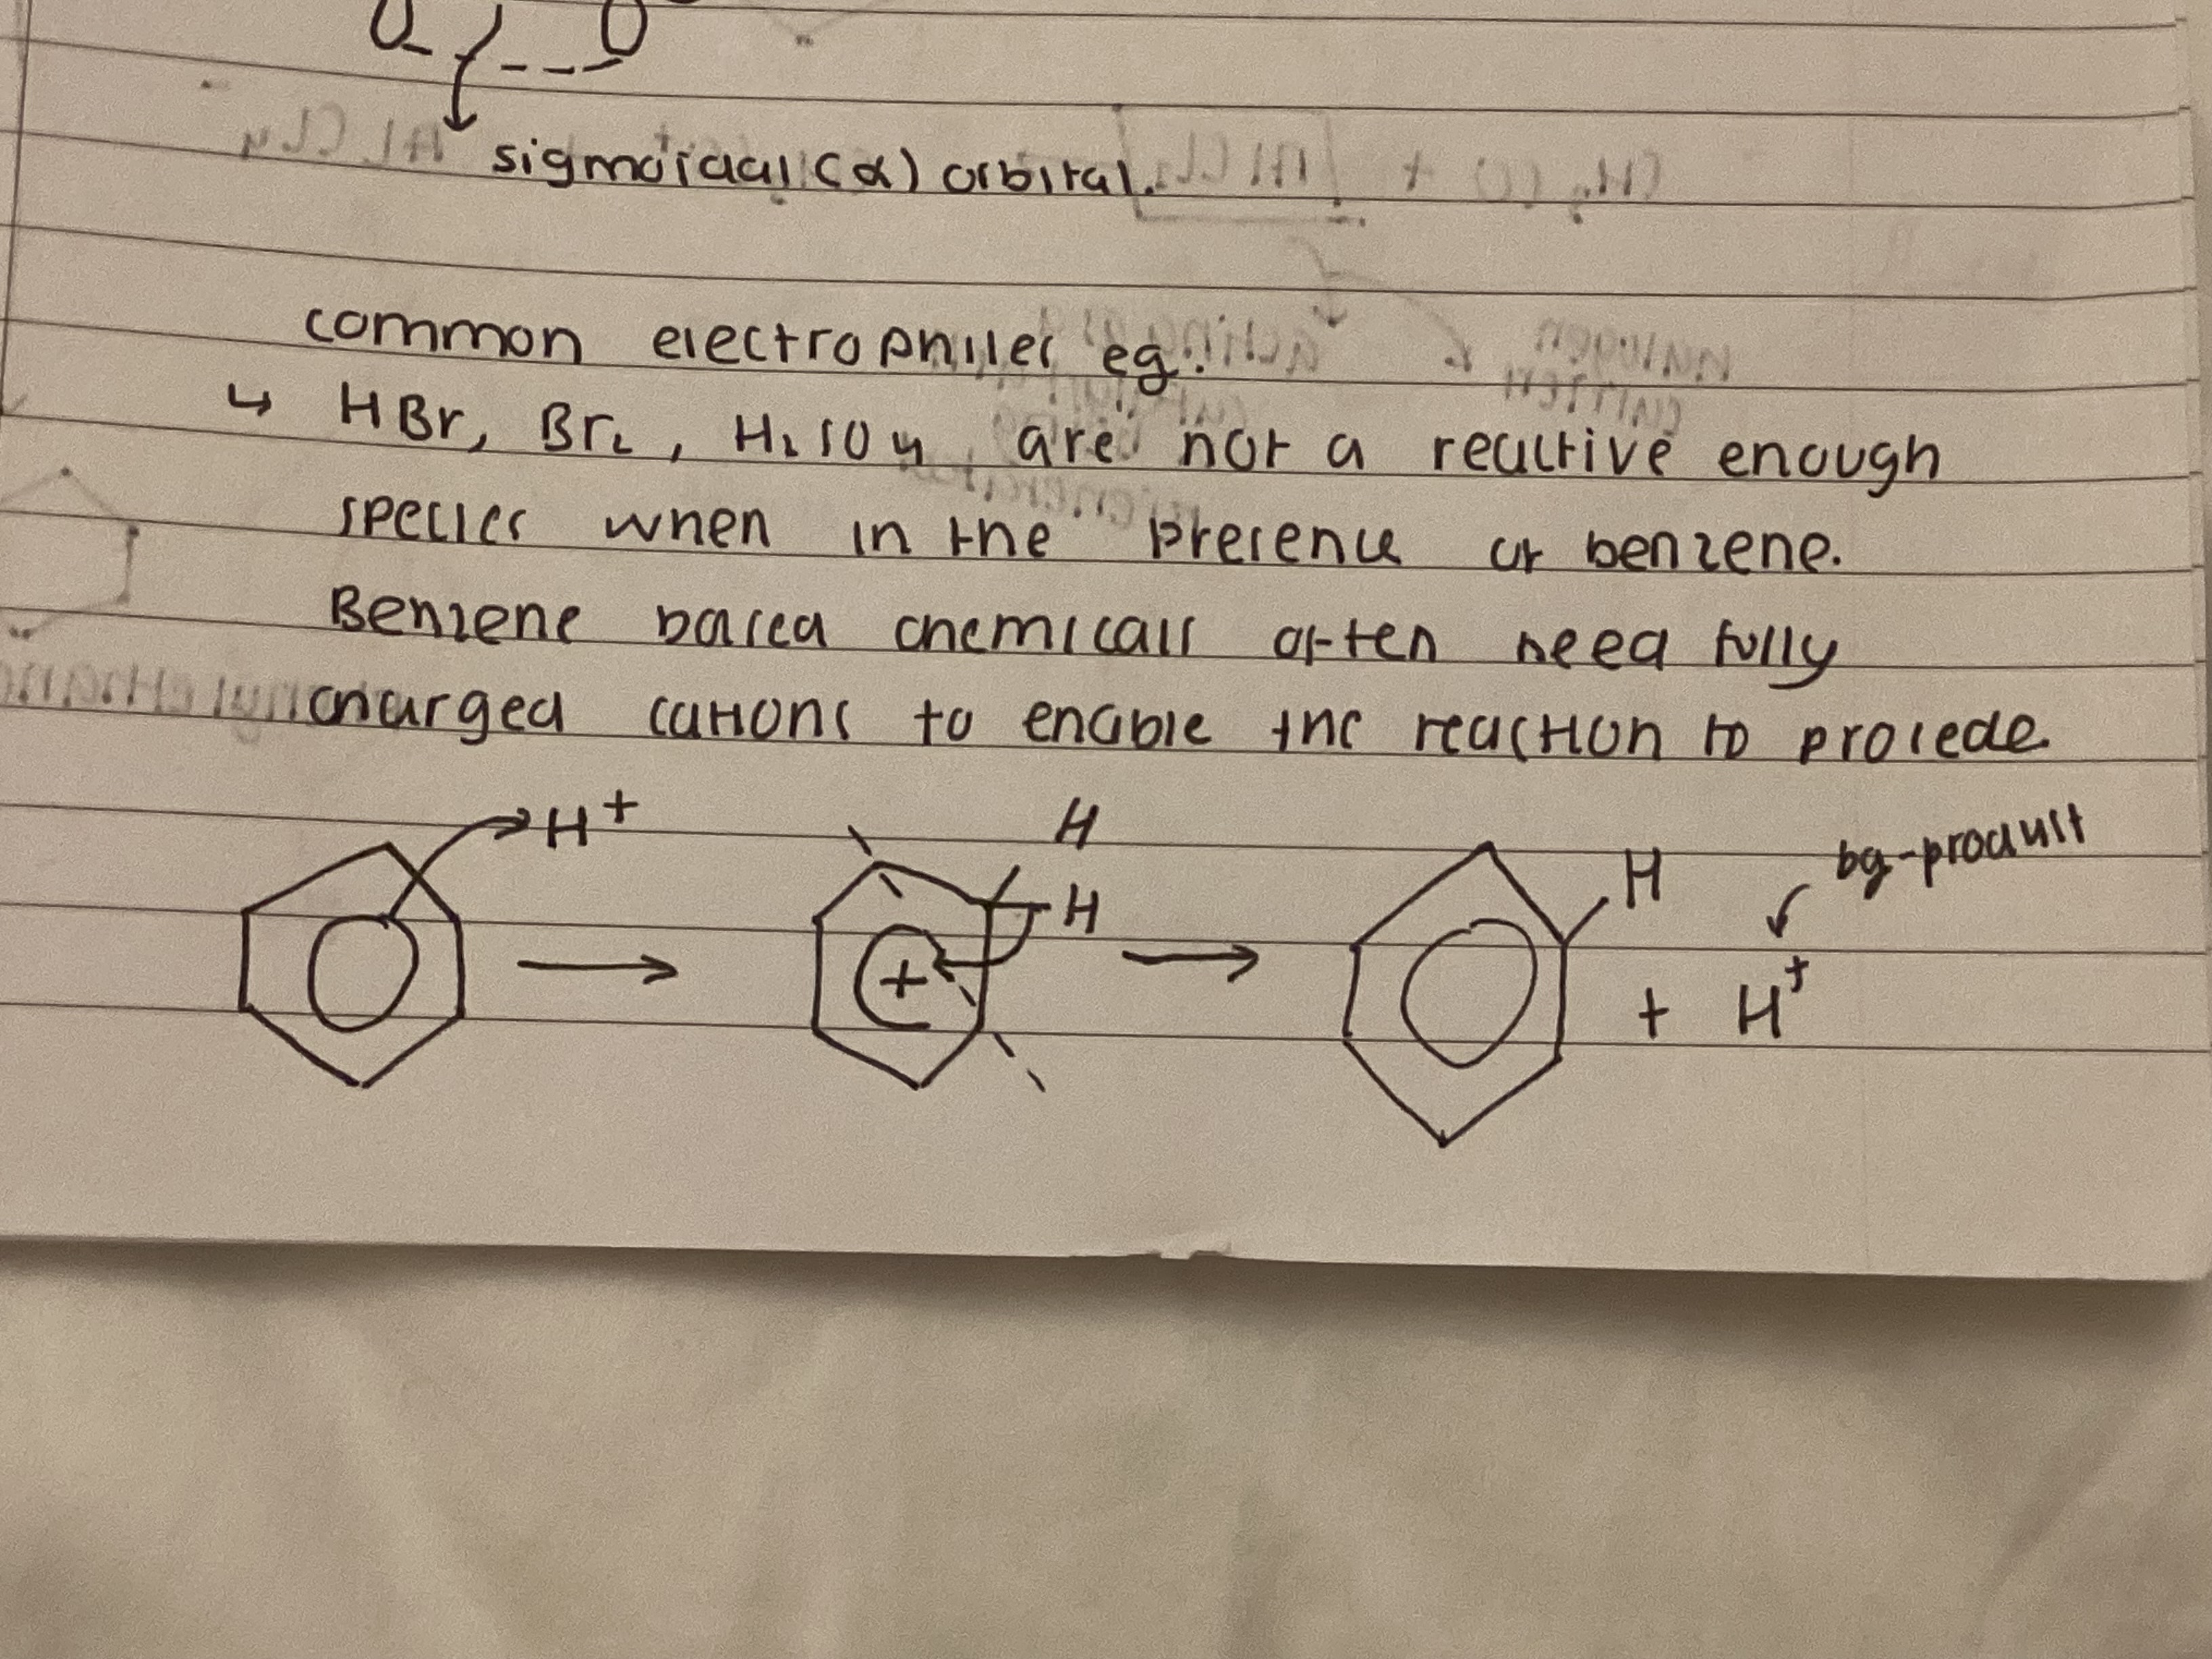 sigmoidal (α) orbital.
common electrophiles eg.
↳ HBr, Br₂, H₂SO₄ are not a reactive enough
species when in the presence of benzene.
Benzene based chemicals often need fully
charged cations to enable the reaction to procede
H⁺
H
H
+
H
+ H⁺
by-product